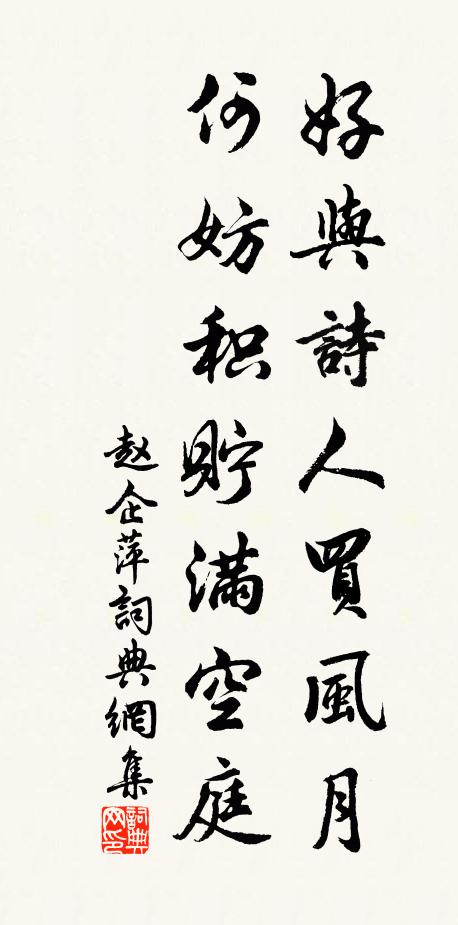 好與詩人買風月
何妨积貯滿空庭
赵企萍詞典網集
詞典
网印